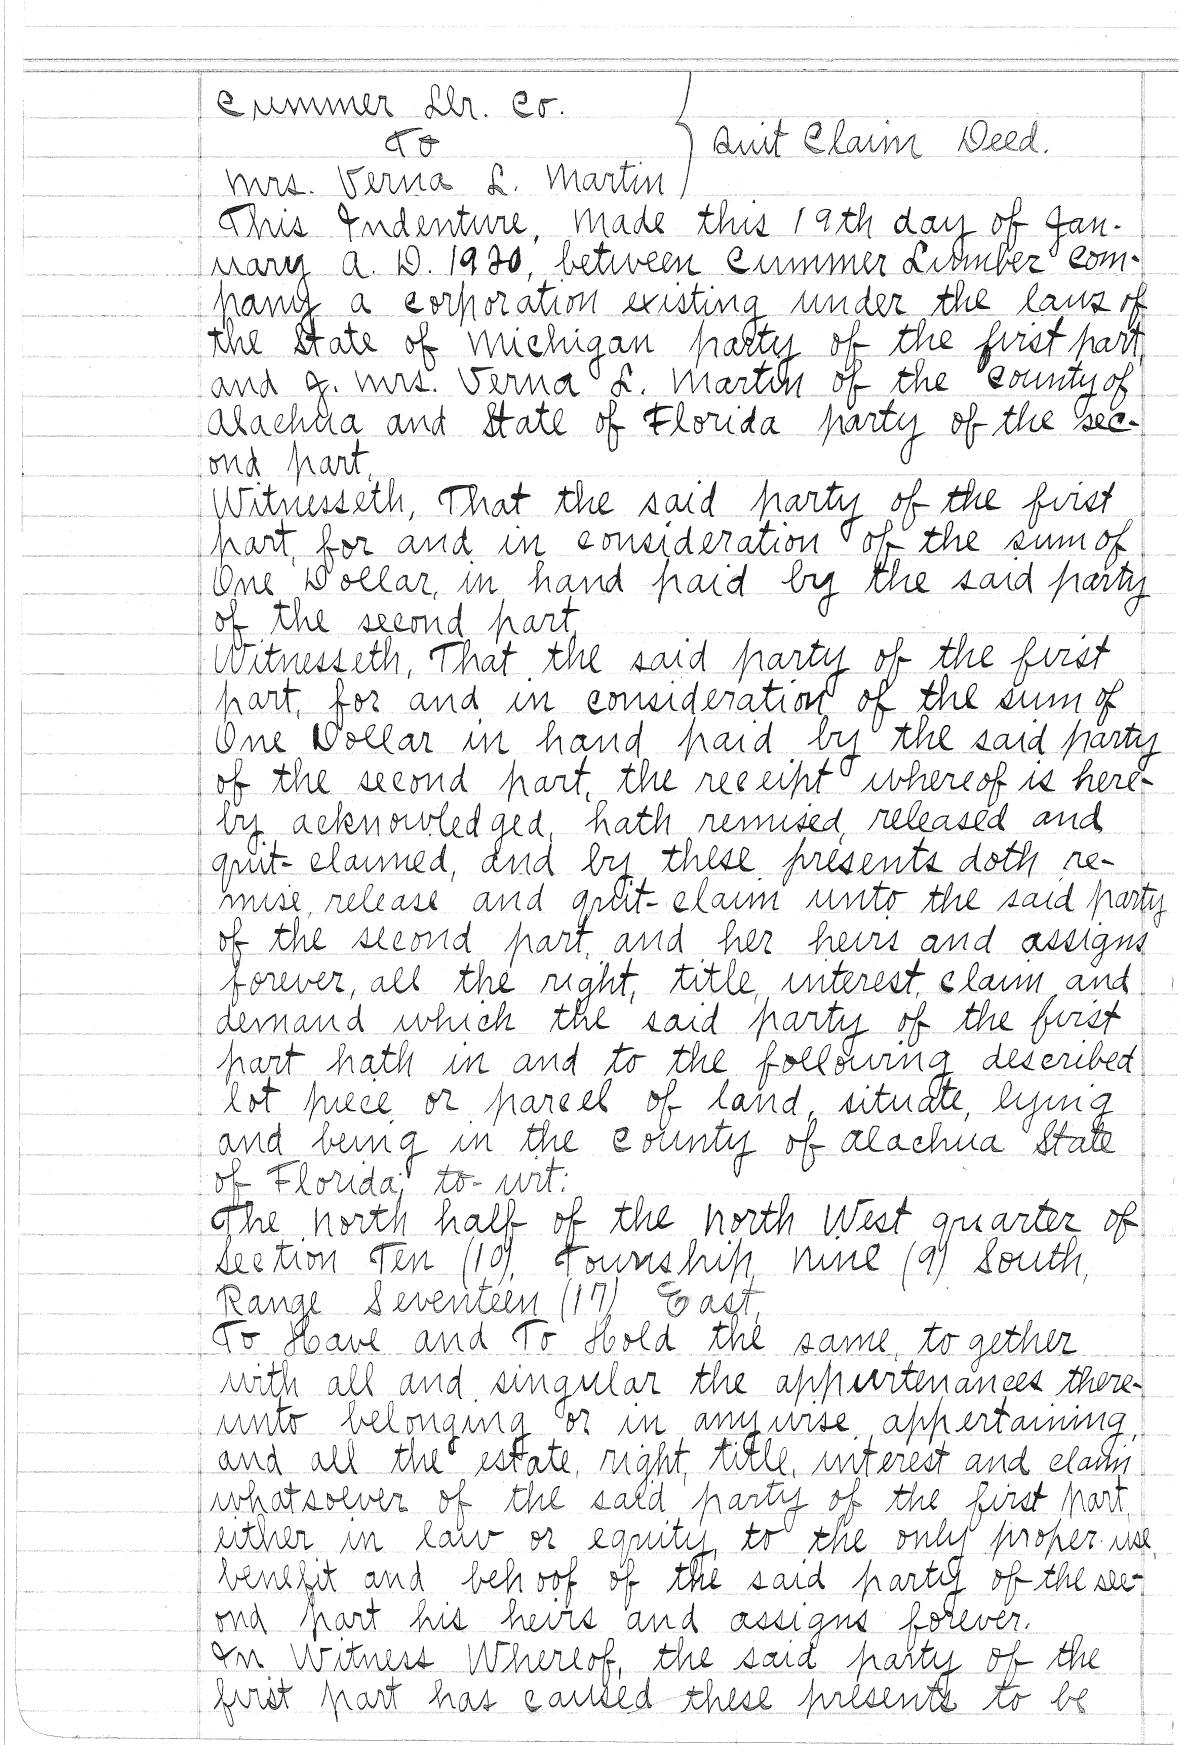 Cummer Lbr. Co.
To
Quit Claim Deed.
Mrs. Verna L. Martin
This Indenture, Made this 19th day of Jan-
uary A. D. 1920, between Cummer Lumber Com-
pany a corporation existing under the laws of
the State of Michigan party of the first part,
and J. Mrs. Verna L. Martin of the County of
Alachua and State of Florida party of the sec-
ond part,
Witnesseth, That the said party of the first
part, for and in consideration of the sum of
One Dollar, in hand paid by the said party
of the second part,
Witnesseth, That the said party of the first
part, for and in consideration of the sum of
One Dollar in hand paid by the said party
of the second part, the receipt whereof is here-
by acknowledged, hath remised, released and
quit-claimed, and by these presents doth re-
mise, release and quit-claim unto the said party
of the second part, and her heirs and assigns
forever, all the right, title, interest, claim and
demand which the said party of the first
part hath in and to the following described
lot piece or parcel of land, situate, lying
and being in the County of Alachua State
of Florida; to-wit:
The North half of the North West quarter of
Section Ten (10), Township Nine (9) South,
Range Seventeen (17) East,
To Have and To Hold the same, together
with all and singular the appurtenances there-
unto belonging or in anywise appertaining,
and all the estate, right, title, interest and claim
whatsoever of the said party of the first part,
either in law or equity, to the only proper use,
benefit and behoof of the said party of the sec-
ond part his heirs and assigns forever.
In Witness Whereof, the said party of the
first part has caused these presents to be